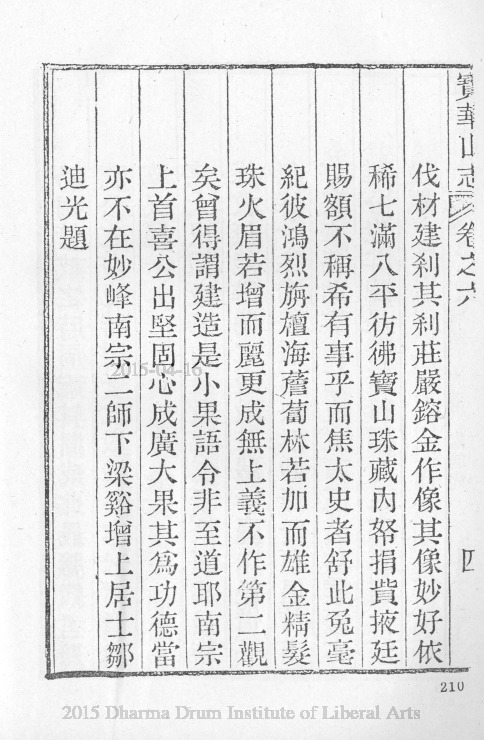 寶華山志 卷之六 四
伐材建刹其刹莊嚴鎔金作像其像妙好依
稀七滿八平彷彿寶山珠藏內帑捐貲掖廷
賜額不稱希有事乎而焦太史者舒此兔毫
紀彼鴻烈旃檀海薝蔔林若加而雄金精髮
珠火眉若增而麗更成無上義不作第二觀
矣曾得謂建造是小果語令非至道耶南宗
上首喜公出堅固心成廣大果其爲功德當
亦不在妙峰南宗二師下梁谿增上居士鄒
迪光題
2015-04-16
210
2015 Dharma Drum Institute of Liberal Arts